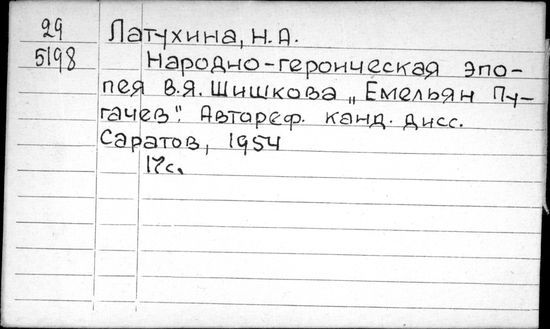 29 Латухина, Н.А.
5198 Народно-героическая эпо-
пея В.Я. Шишкова „Емельян Пу-
гачев". Автореф. канд. дисс.
Саратов, 1954
17с.